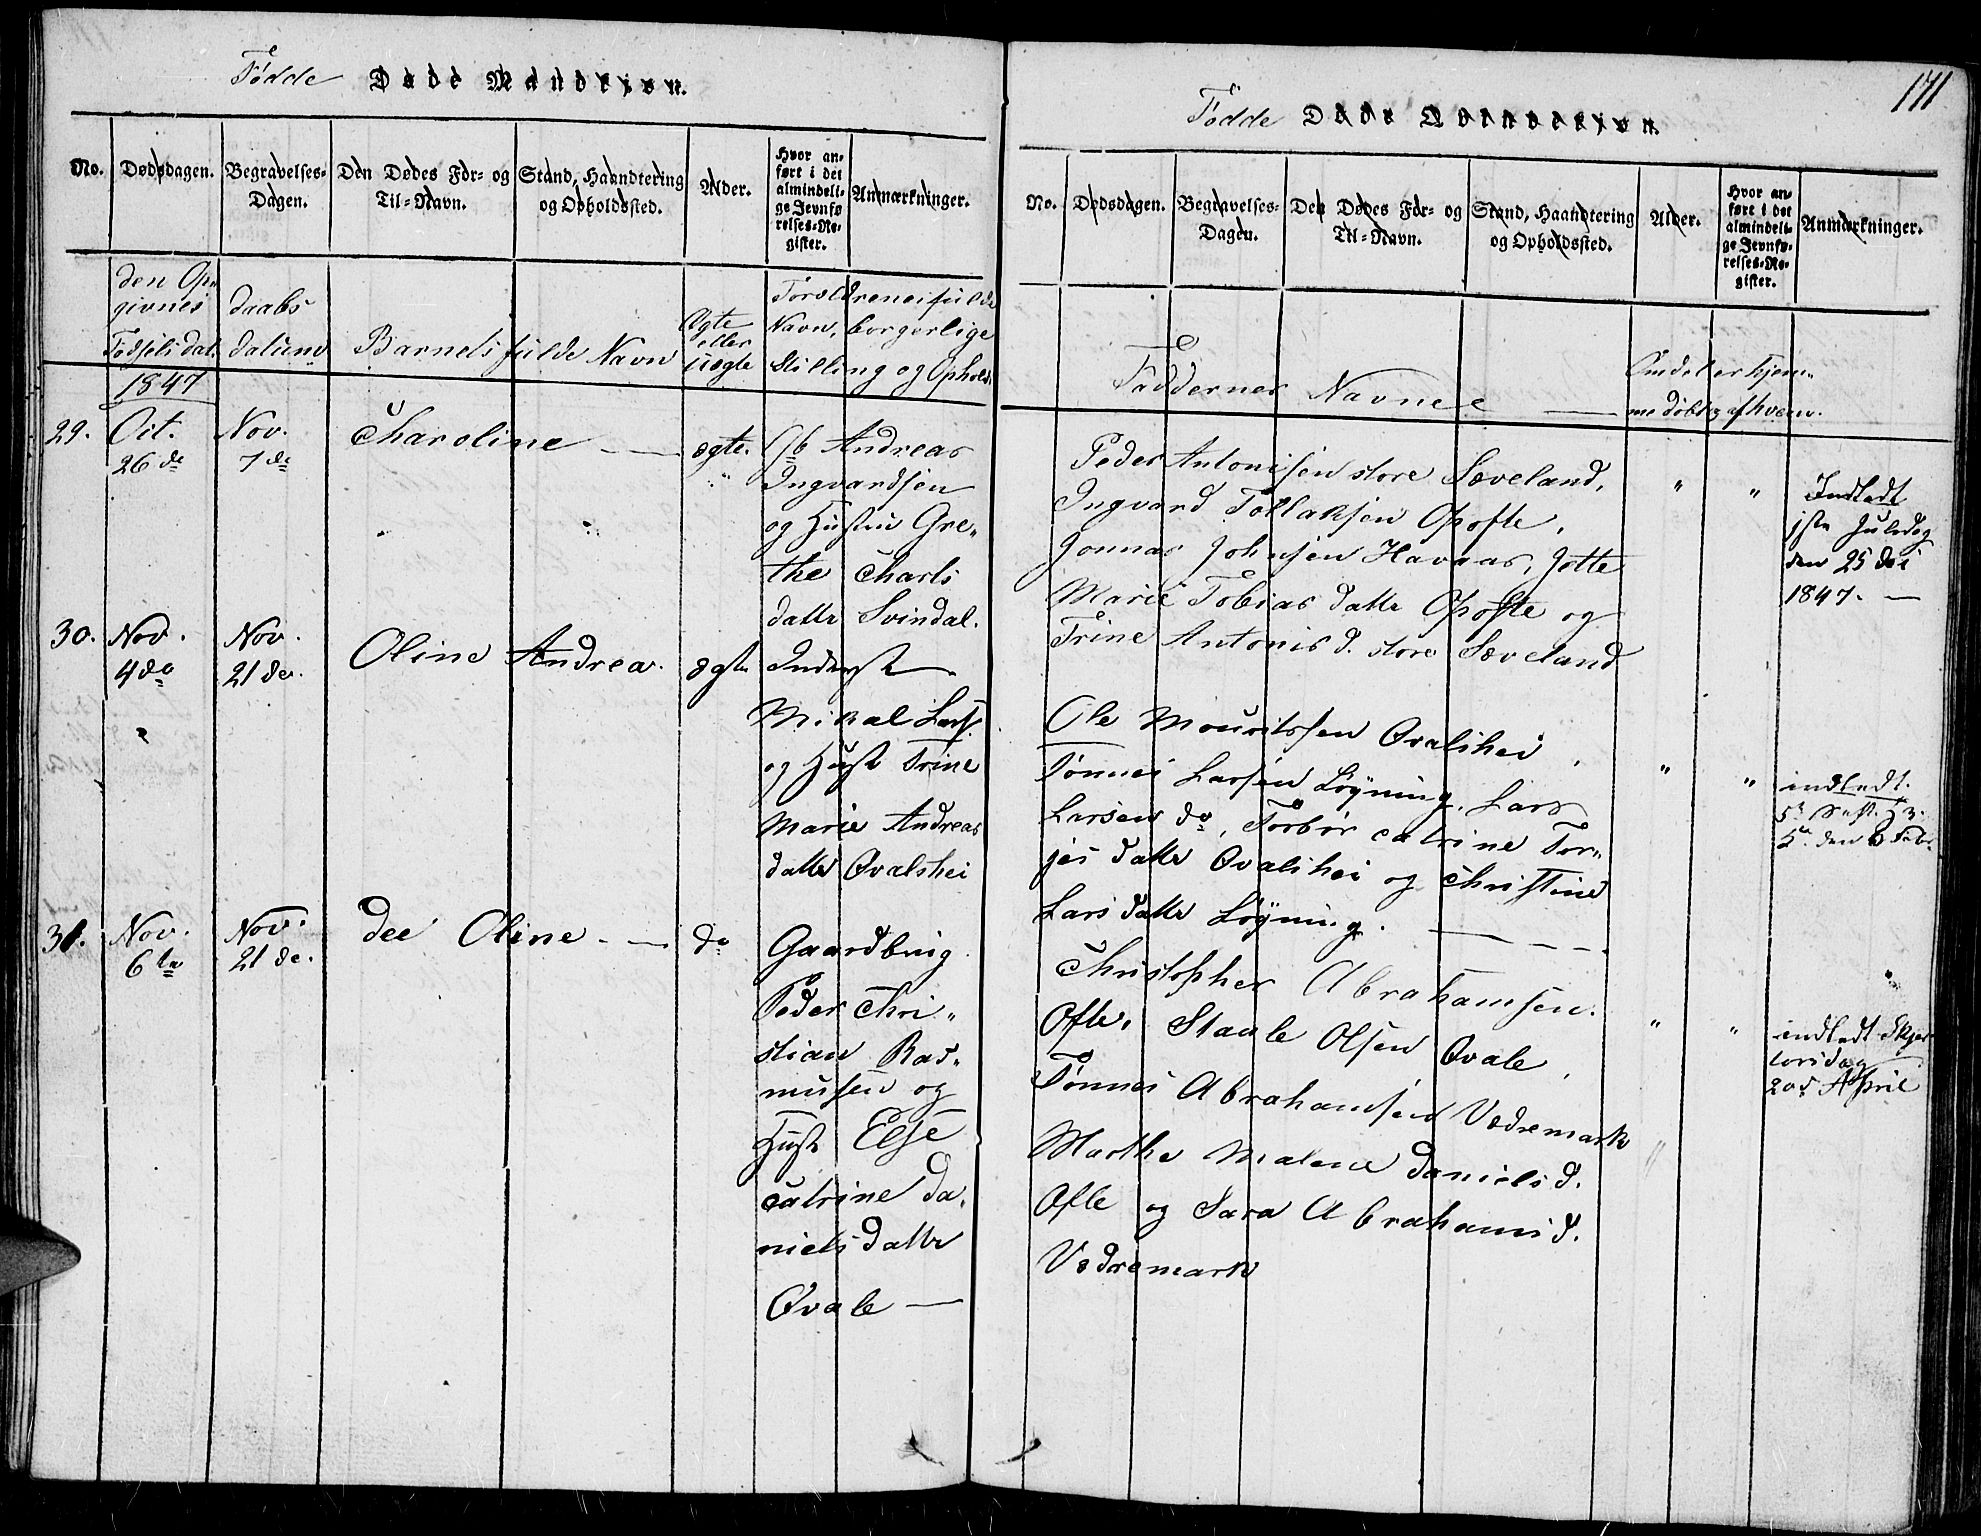 Fødde Døde Mandkjøn.
No.
Dødsdagen.
Begravelses-
Dagen.
Den Dødes For- og
Til-Navn.
Stand, Haandtering
og Opholdssted.
Alder.
Hvor an-
ført i det
almindeli-
ge Jevnfø
relses-Re-
gister.
Anmærkninger.
den Op-
givnes
Fødsels dat.
daabs
datum
Barnets fulde Navn
Ægte
eller
uægte
Forældrenes fulde
Navn, borgerlige
Stilling og Ophold
1847
29.
Oct.
26 de
Nov.
7 de
Charoline
ægte.
Gb Andreas
Ingvardsen
og Hustru Gre„
the Charls
datter Svindal.
30.
Nov.
4 de
Nov.
21 de.
Oline Andrea.
ægte
Inderst
Mikal Lars.
og Hust Trine
Marie Andreas
datter Øvalshei
31.
Nov.
6 te
Nov.
21 de.
Dee Oline
do
Gaardbrug
Peder Chri„
stian Ras„
musen og
Hust Else
Catrine Da„
niels datter
Øvale
171
Fødde Døde Qvindekjøn.
No.
Dødsdagen.
Begravelses-
Dagen.
Den Dødes For- og
Til-Navn.
Stand, Haandtering
og Opholdssted.
Alder.
Hvor an-
ført i det
almindeli-
ge Jevnfø-
relses-Re-
gister.
Anmærkninger.
Faddernes Navne
Om det er hjem„
me døbt og af hvem.
Peder Antonisen store Sæveland,
Ingvard Tollaksen Opofte,
Jonnas Johnsen Havaas, Jotte
Marie Tobias datter Opofte og
Trine Antonis d. store Sæveland
Indledt
1ste Juledag
den 25 de
1847.
Ole Mouritssen Øvalshei,
Tønnes Larsen Løyning, Lars
Larsen do, Torbør Catrine Tor„
jes datter Øvalshei og Christine
Lars datter Løyning.
indledt.
Christopher Abrahamsen
Ofte, Staale Olsen Øvale,
Tønnes Abrahamsen Vedremark
Marthe Malene Daniels d.
Ofte og Sara Abrahams d.
Vedremark
indledt Skjer
torsdag
20 d. April